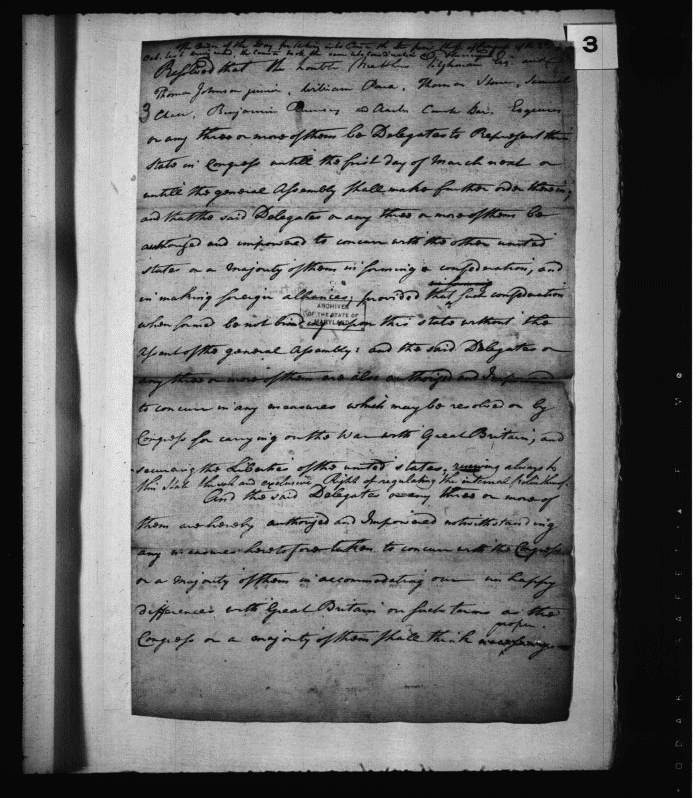 3
The Order of the Day for taking into Cons
Resolved that the honble Matthew Tilghman Esq. and
Thomas Johnson junior, William Paca, Thomas Stone, Samuel
3
Chase, Benjamin Rumsey Esquires
or any three or more of them be Delegates to Represent this
state in Congress untill the first day of March next or
untill the general Assembly shall make further order therein;
and that the said Delegates or any three or more of them be
authorized and impowered to concur with the other united
states or a majority of them in forming a confederation, and
in making foreign alliances, provided that such confederation
when formed be not binding upon this state without the
assent of the general Assembly: and the said Delegates or
any three or more of them are also authorized and Impowered
to concur in any measures which may be resolved on by
Congress for carrying on the War with Great Britain, and
securing the Liberties of the united states, always to
this State the sole and exclusive Right of regulating the internal
And the said Delegates or any three or more of
them are hereby authorized and Impowered notwithstanding
any measures heretofore taken to concur with the Congress
or a majority of them in accommodating our unhappy
difference with Great Britain on such terms as the
proper.
Congress or a majority of them shall think
ARCHIVES
OF THE STATE OF
MARYLAND